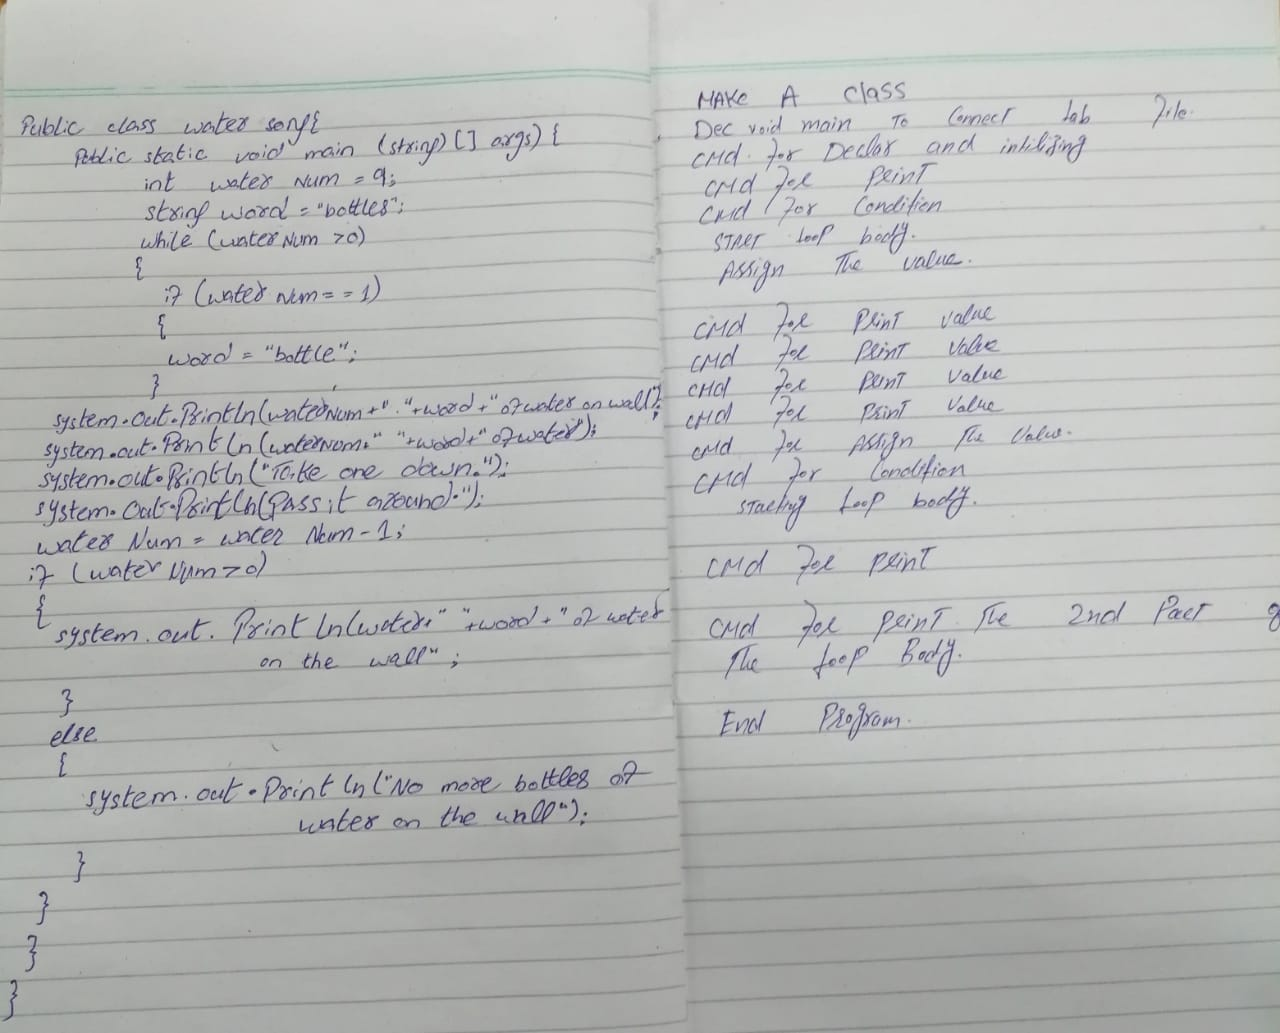 Public class water song{
Public static void main (string) [] args) {
int water Num = 9;
string word = "bottles";
while (water Num >0)
{
if (water Num = = 1)
{
word = "bottle";
}
system.out.Println(waterNum+" "+word+" of water on wall");
system.out.Print ln (waterNum+" "+word+" of water");
system.out.Println ("Take one down.");
system.out.Println(Pass it around.");
water Num = water Num - 1;
if (water Num >0)
{
system.out. Print ln(water+" "+word+" of water
on the wall" ;
}
else
{
system.out.Print ln ("No more bottles of
water on the wall");
}
}
}
}
MAKE A class
Dec void main To Connect lab file.
CMd. for Declar and intilizing
CMd for Print
Cmd for Condition
START loop body.
Assign The value.
CMd for Print value
CMd for Print Value
CMd for Print Value
CMd for Print Value
CMd for Assign The Value.
CMd for Condition
starting loop body.
CMd for print
CMd for print The 2nd Part of
The loop Body.
End Program.